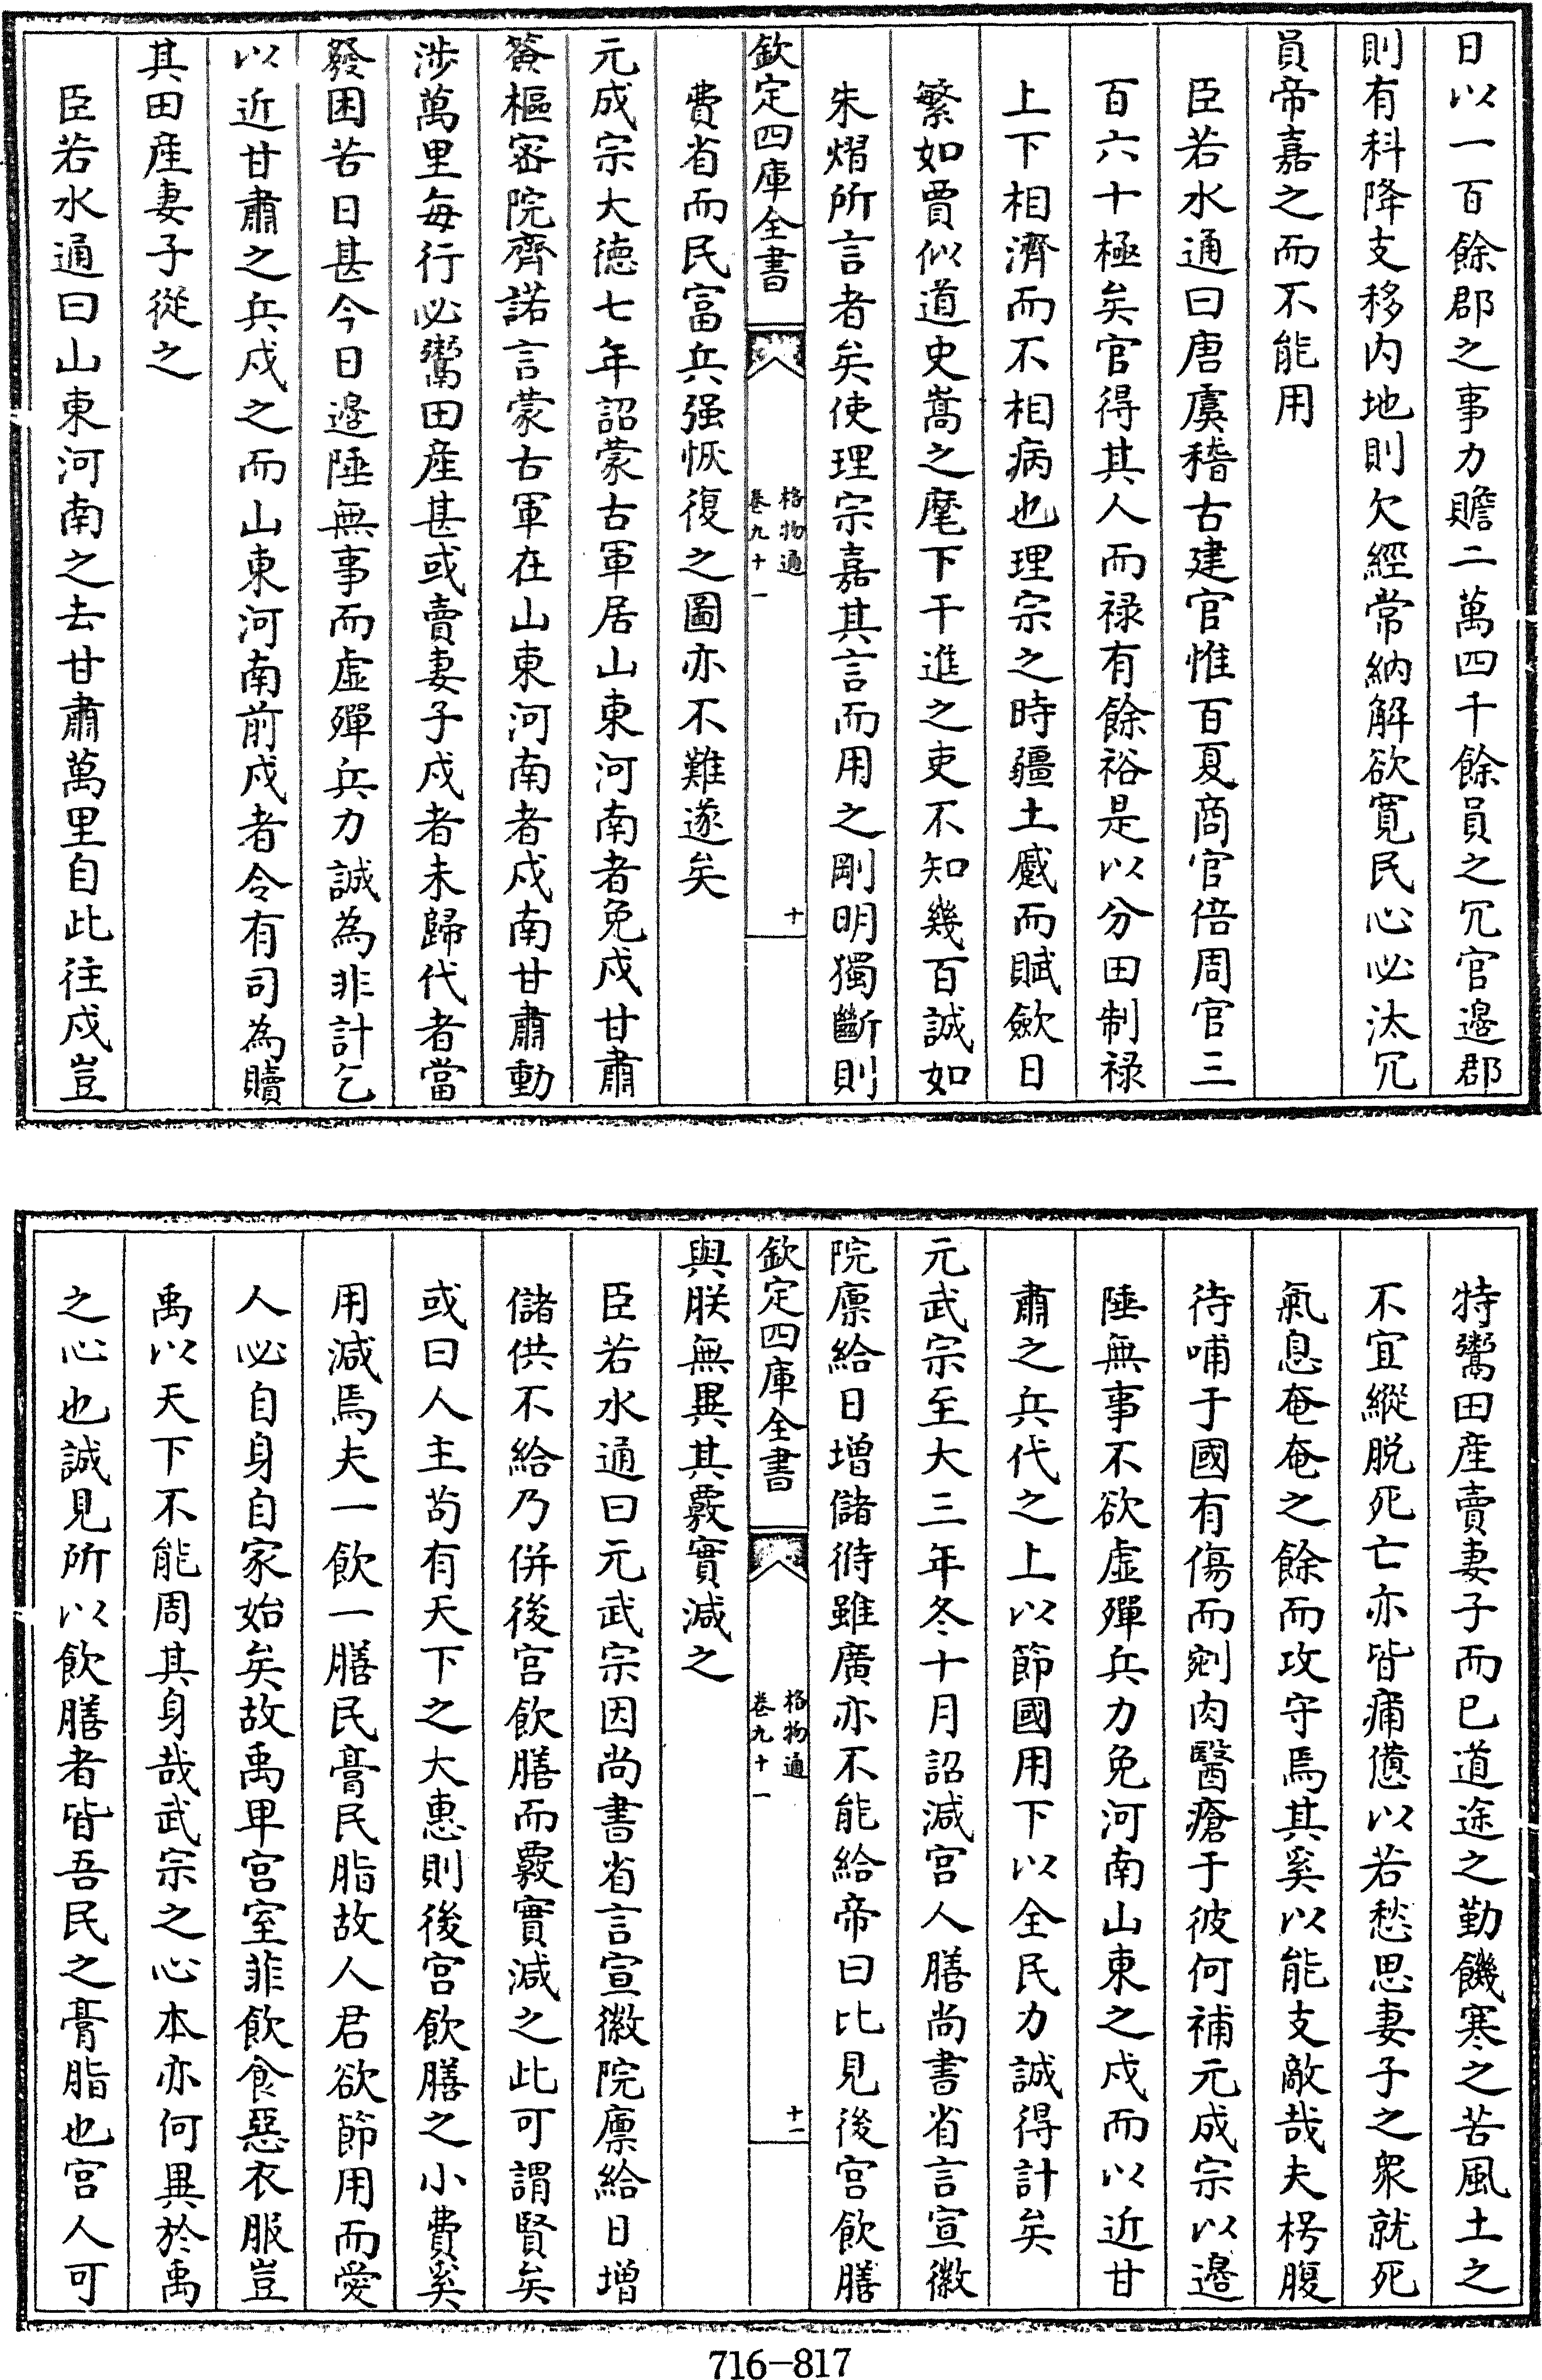 日以一百餘郡之事力贍二萬四千餘員之冗官邉郡
則有科降支移内地則欠經常納解欲寛民心必汰冗
員帝嘉之而不能用
臣若水通曰唐虞稽古建官惟百夏商官倍周官三
百六十極矣官得其人而禄有餘裕是以分田制禄
上下相濟而不相病也理宗之時疆土蹙而賦歛日
繁如賈似道史嵩之麾下干進之吏不知幾百誠如
朱熠所言者矣使理宗嘉其言而用之剛明獨斷則
欽定四庫全書
格物通
卷九十一
十
費省而民富兵强恢復之圖亦不難遂矣
元成宗大徳七年詔蒙古軍居山東河南者免戍甘肅
簽樞密院齊諾言蒙古軍在山東河南者戍南甘肅動
涉萬里每行必鬻田産甚或賣妻子戍者未歸代者當
發困苦日甚今日邉陲無事而虛殫兵力誠為非計乞
以近甘肅之兵戍之而山東河南前戍者令有司為贖
其田産妻子從之
臣若水通曰山東河南之去甘肅萬里自此往戍豈
特鬻田産賣妻子而已道途之勤饑寒之苦風土之
不宜縱脱死亡亦皆痡憊以若愁思妻子之衆就死
氣息奄奄之餘而攻守焉其奚以能支敵哉夫枵腹
待哺于國有傷而剜肉醫瘡于彼何補元成宗以邉
陲無事不欲虛殫兵力免河南山東之戍而以近甘
肅之兵代之上以節國用下以全民力誠得計矣
元武宗至大三年冬十月詔減宫人膳尚書省言宣徽
院廪給日增儲偫雖廣亦不能給帝曰比見後宫飲膳
欽定四庫全書
格物通
卷九十一
十一
與朕無異其覈實減之
臣若水通曰元武宗因尚書省言宣徽院廪給日增
儲供不給乃併後宫飲膳而覈實減之此可謂賢矣
或曰人主茍有天下之大惠則後宫飲膳之小費奚
用減焉夫一飲一膳民膏民脂故人君欲節用而愛
人必自身自家始矣故禹卑宫室菲飲食惡衣服豈
禹以天下不能周其身哉武宗之心本亦何異於禹
之心也誠見所以飲膳者皆吾民之膏脂也宫人可
716-817